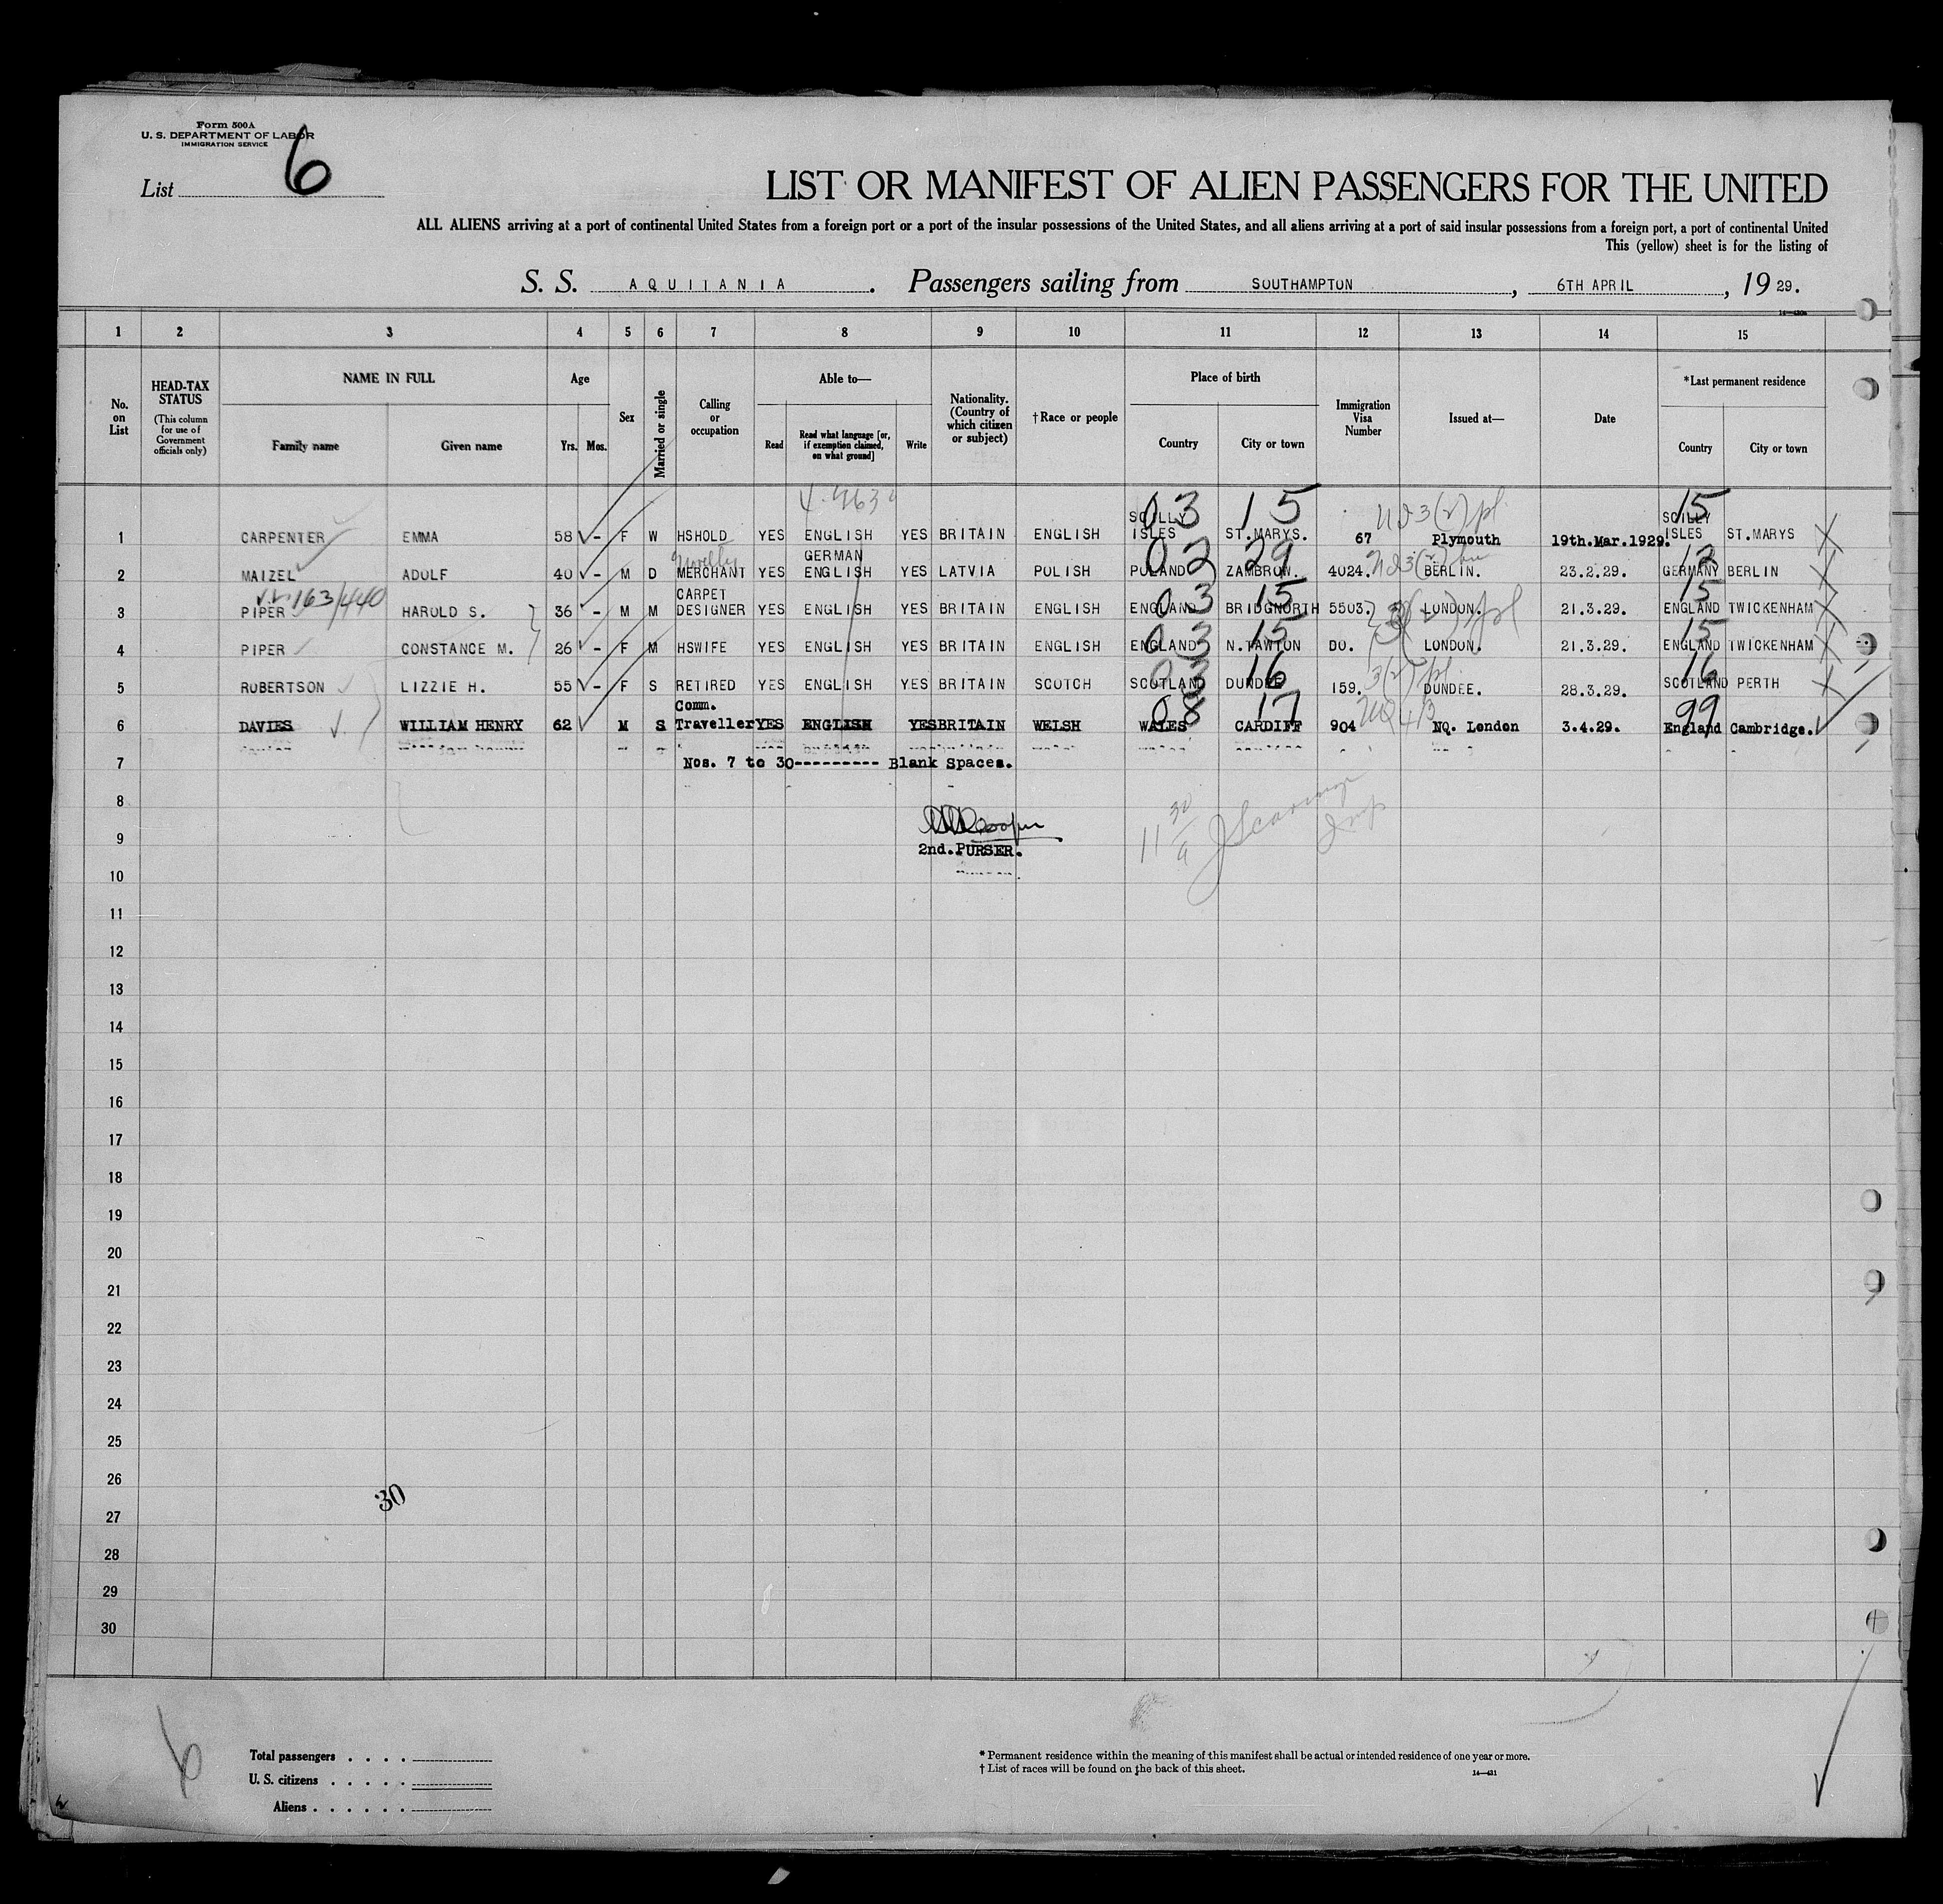 Form 500A
U. S. DEPARTMENT OF LABOR
IMMIGRATION SERVICE
List 6
LIST OR MANIFEST OF ALIEN PASSENGERS FOR THE UNITED
ALL ALIENS arriving at a port of continental United States from a foreign port or a port of the insular possessions of the United States, and all aliens arriving at a port of said insular possessions from a foreign port, a port of continental United
This (yellow) sheet is for the listing of
S. S. AQUITANIA. Passengers sailing from SOUTHAMPTON, 6TH APRIL, 19 29.
1 2 3 4 5 6 7 8 9 10 11 12 13 14 15
No. on List
HEAD-TAX STATUS (This column for use of Government officials only)
NAME IN FULL Family name Given name
Age Yrs. Mos.
Sex
Married or single
Calling or occupation
Able to— Read Read what language [or, if exemption claimed, on what ground] Write
Nationality. (Country of which citizen or subject)
†Race or people
Place of birth Country City or town
Immigration Visa Number
Issued at—
Date
*Last permanent residence Country City or town
03 15 15
1 CARPENTER EMMA 58 - F W HSHOLD YES ENGLISH YES BRITAIN ENGLISH SCILLY ISLES ST.MARYS. 67 Plymouth 19th.Mar.1929. SCILLY ISLES ST.MARYS X
02 29 12
2 MAIZEL ADOLF 40 - M D Novelty MERCHANT YES GERMAN ENGLISH YES LATVIA POLISH POLAND ZAMBROW. 4024. BERLIN. 23.2.29. GERMANY BERLIN X
163/440 03 15 15
3 PIPER HAROLD S. 36 - M M CARPET DESIGNER YES ENGLISH YES BRITAIN ENGLISH ENGLAND BRIDGNORTH 5503. LONDON. 21.3.29. ENGLAND TWICKENHAM X
03 15 15
4 PIPER CONSTANCE M. 26 - F M HSWIFE YES ENGLISH YES BRITAIN ENGLISH ENGLAND N.TAWTON DO. LONDON. 21.3.29. ENGLAND TWICKENHAM X
03 16 16
5 ROBERTSON LIZZIE H. 55 - F S RETIRED YES ENGLISH YES BRITAIN SCOTCH SCOTLAND DUNDEE 159. DUNDEE. 28.3.29. SCOTLAND PERTH X
08 17 99
6 DAVIES WILLIAM HENRY 62 M S Comm. Traveller YES ENGLISH YES BRITAIN WELSH WALES CARDIFF 904 NQ. London 3.4.29. England Cambridge.
7 Nos. 7 to 30--------- Blank Spaces.
8
9
2nd.PURSER.
10
11
12
13
14
15
16
17
18
19
20
21
22
23
24
25
26
30
27
28
29
30
Total passengers . . . .
U. S. citizens . . . . .
Aliens . . . . . .
* Permanent residence within the meaning of this manifest shall be actual or intended residence of one year or more.
† List of races will be found on the back of this sheet.
14—431